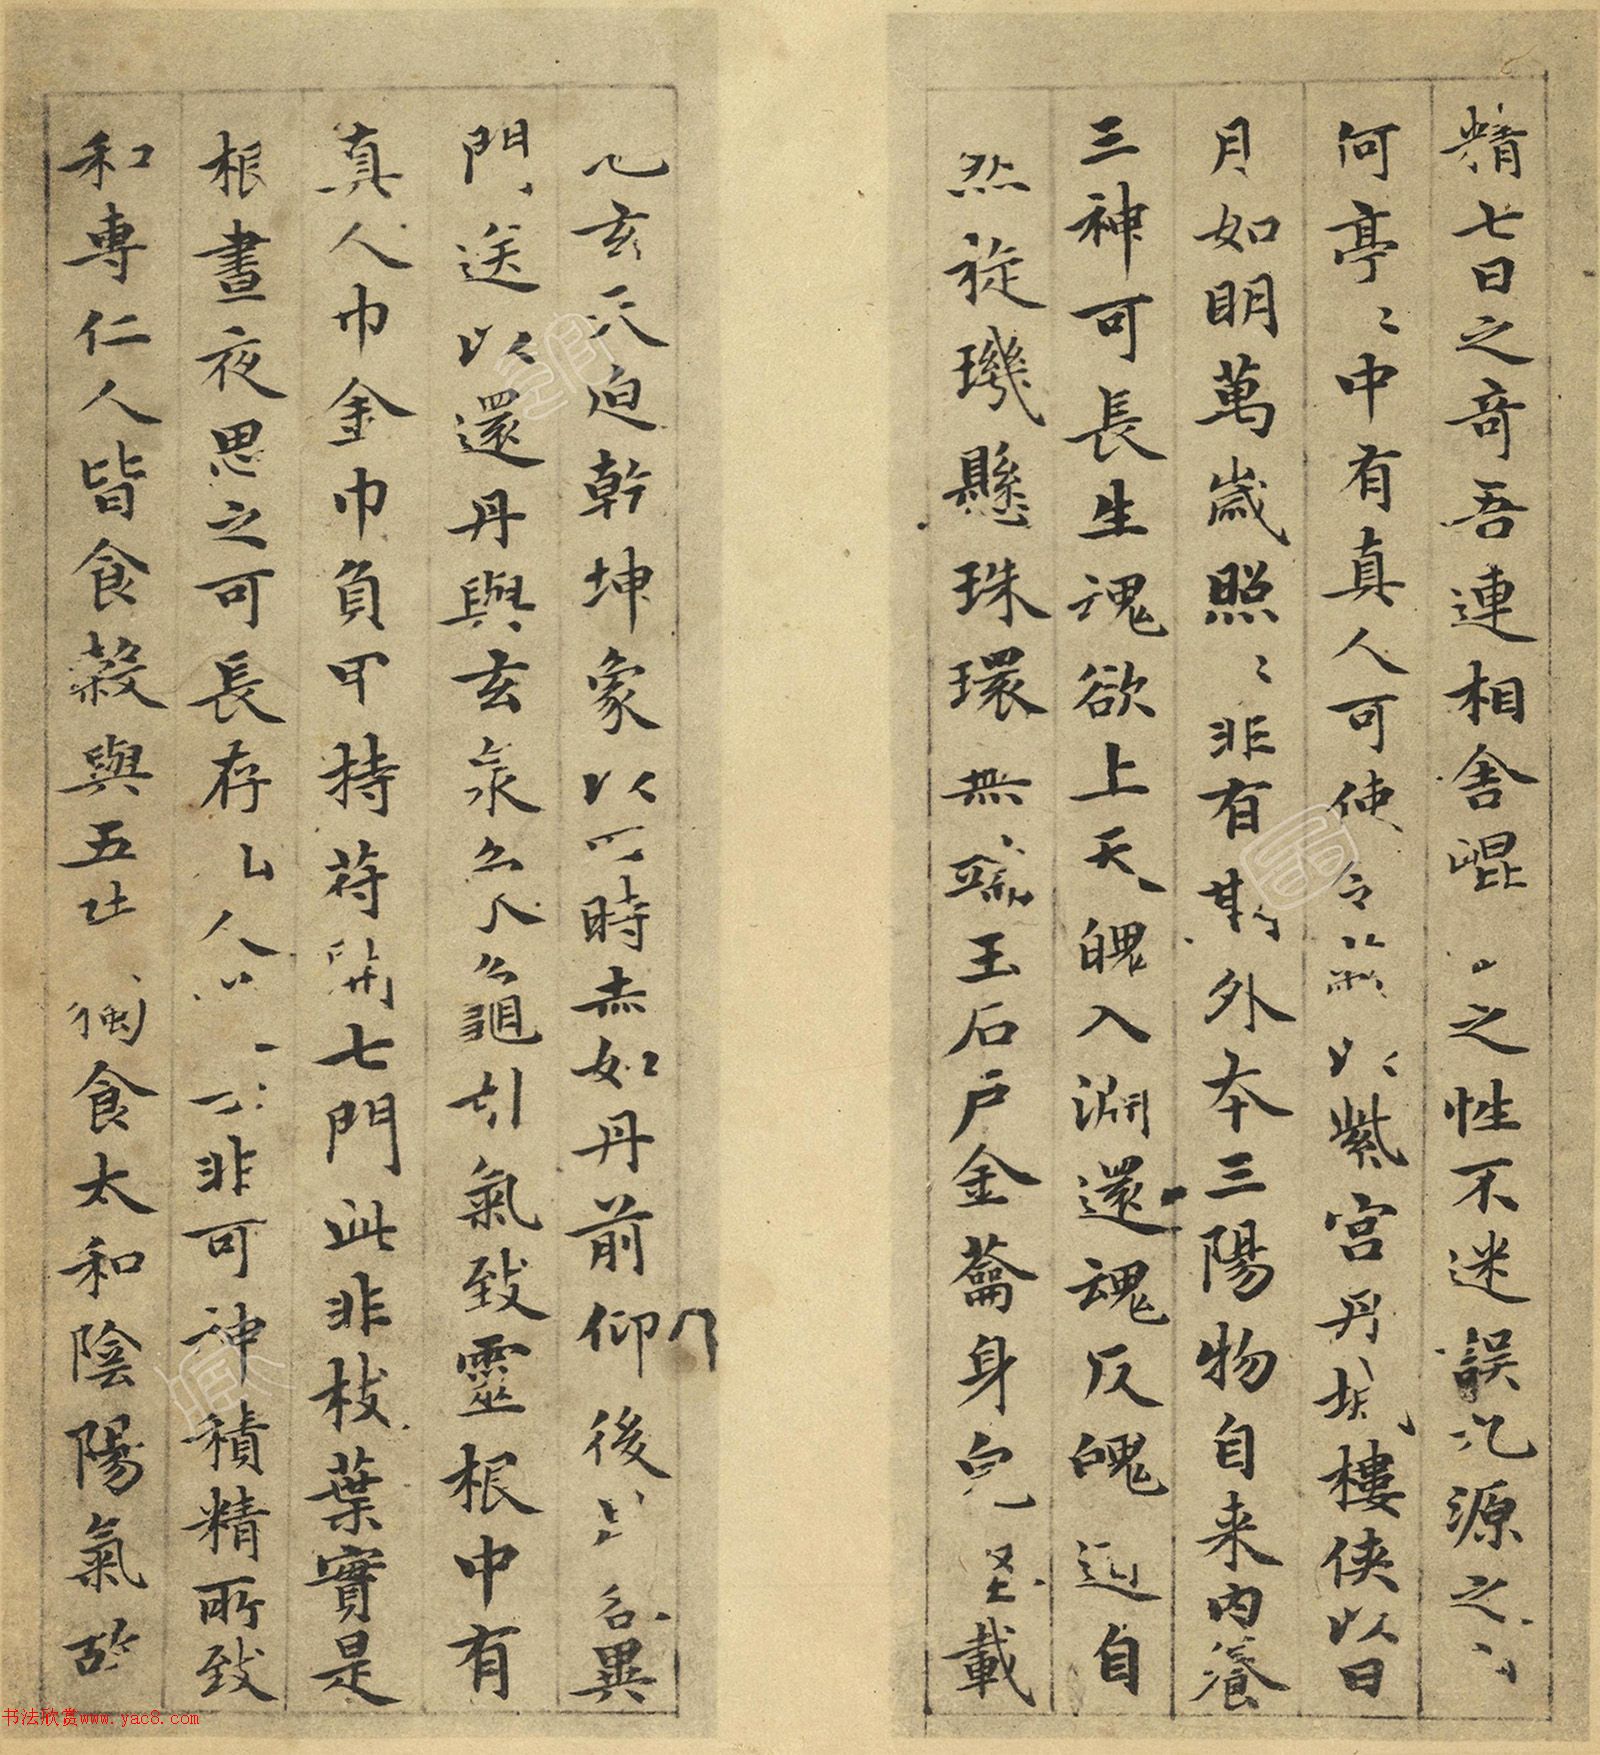 精七日之奇吾連相舍崐之性不迷誤九源之
何亭〻中有真人可使令以紫宮丹城樓俠以日
月如明萬歲照〻非有期外本三陽物自来内養
三神可長生魂欲上天魄入淵還魂反魄道自
然旋璣懸珠環無端玉石戶金籥身完堅載
地玄天迫乾坤象以四時赤如丹前仰後卑各異
門送以還丹與玄泉象龜引氣致靈根中有
真人巾金巾負甲持符開七門此非枝葉實是
根晝夜思之可長存人非可神積精所致
和專仁人皆食穀與五味獨食太和陰陽氣故
书法欣赏www.yac8.com